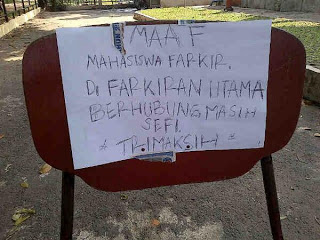 MAAF
MAHASISWA FARKIR.
DI FARKIRAN UTAMA
BERHUBUNG MASIH
SEFI.
* TRIMAKSIH *